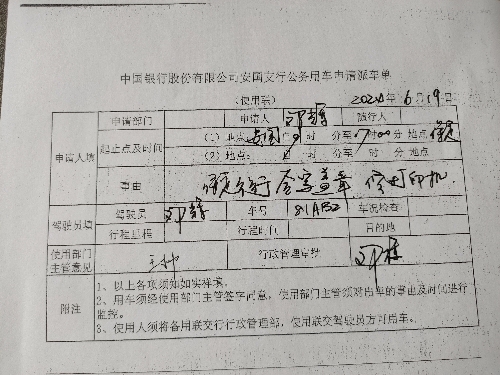 中国银行股份有限公司安国支行公务用车申请派车单
(使用联) 2020年6月19日
申请部门 申请人 邓 随行人
申请人填 起止点及时间 (1) 地点 安国 日9时 分至17时00分 地点 保定
(2) 地点: 日 时 分至 时 分 地点
事由 保定分行 盖章 修打印机
驾驶员填 驾驶员 邓 车号 车况检查
行程里程 行程时间 目的地
使用部门主管意见 行政管理审批 邓
附注 1、以上各项须如实祥填。
2、用车须经使用部门主管签字同意,使用部门主管须对出车的事由及时间进行
监控。
3、使用人须将备用联交行政管理部,使用联交驾驶员方可用车。